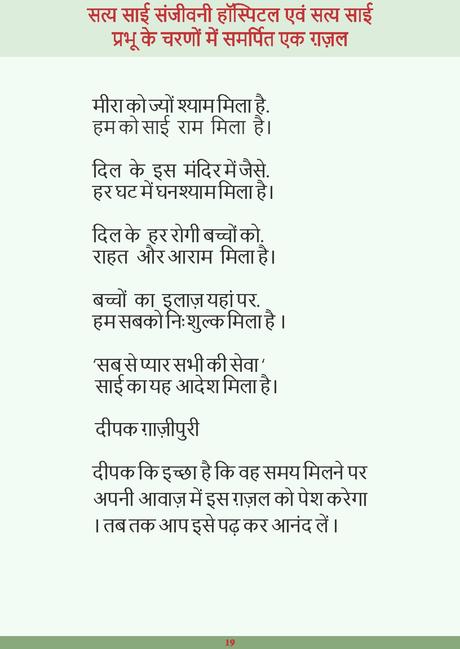 सत्य साई संजीवनी हॉस्पिटल एवं सत्य साई
प्रभू के चरणों में समर्पित एक ग़ज़ल
मीरा को ज्यों श्याम मिला है.
हम को साई राम मिला है।
दिल के इस मंदिर में जैसे.
हर घट में घनश्याम मिला है।
दिल के हर रोगी बच्चों को.
राहत और आराम मिला है।
बच्चों का इलाज़ यहां पर.
हम सबको निःशुल्क मिला है ।
‘सब से प्यार सभी की सेवा ‘
साई का यह आदेश मिला है।
दीपक ग़ाज़ीपुरी
दीपक कि इच्छा है कि वह समय मिलने पर
अपनी आवाज़ में इस ग़ज़ल को पेश करेगा
। तब तक आप इसे पढ़ कर आनंद लें ।
19